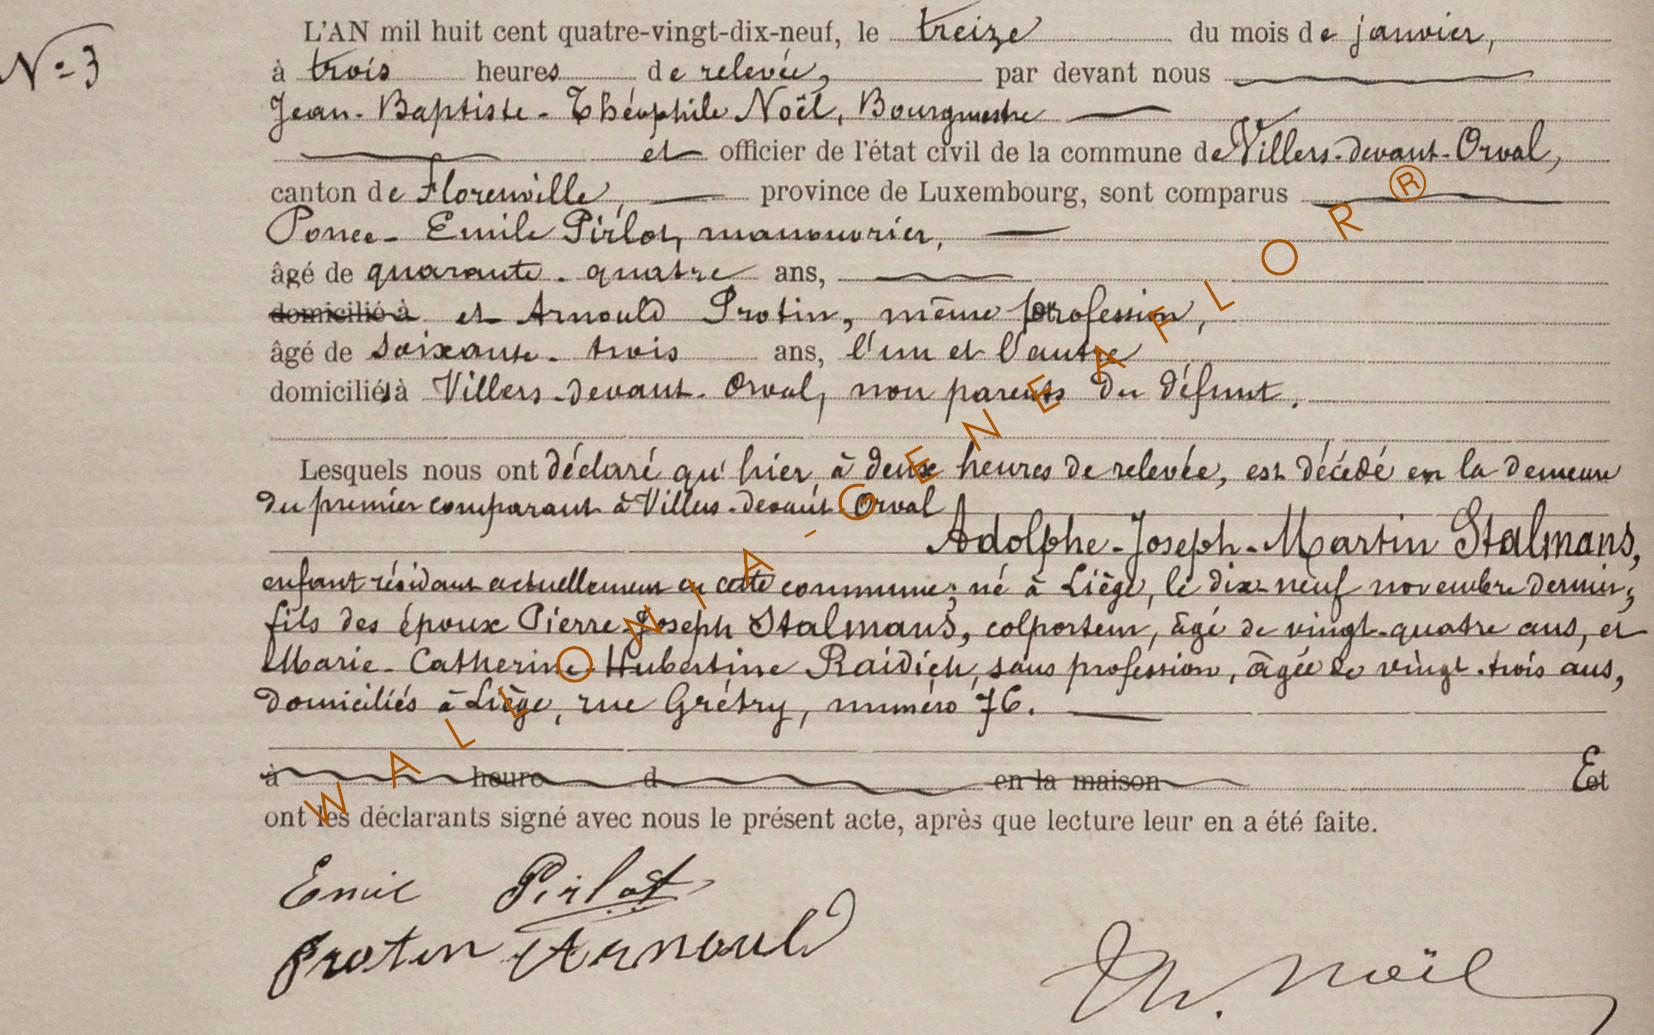 N° 3
L'AN mil huit cent quatre-vingt-dix-neuf, le treize du mois de janvier,
à trois heures de relevée, par devant nous
Jean-Baptiste-Théophile Noël, Bourgmestre
et officier de l'état civil de la commune de Villers-devant-Orval,
canton de Florenville, province de Luxembourg, sont comparus
Ponce-Emile Pirlot, manouvrier,
âgé de quarante-quatre ans,
domicilié à et Arnould Protin, même profession,
âgé de soixante-trois ans, l'un et l'autre
domiciliés à Villers-devant-Orval, non parents du défunt.
Lesquels nous ont déclaré qu'hier, à deux heures de relevée, est décédé en la demeure
du premier comparant à Villers-devant-Orval
Adolphe-Joseph-Martin Stalmans,
enfant résidant actuellement en cette commune; né à Liège, le dix-neuf novembre dernier;
fils des époux Pierre-Joseph Stalmans, colporteur, âgé de vingt-quatre ans, et
Marie-Catherine-Hubertine Raidich, sans profession, âgée de vingt-trois ans,
domiciliés à Liège, rue Grétry, numéro 76.
à heure d en la maison Et
ont les déclarants signé avec nous le présent acte, après que lecture leur en a été faite.
Emile Pirlot
Protin Arnould
Th. Noël
WALLONIA-GENEAFLOR®